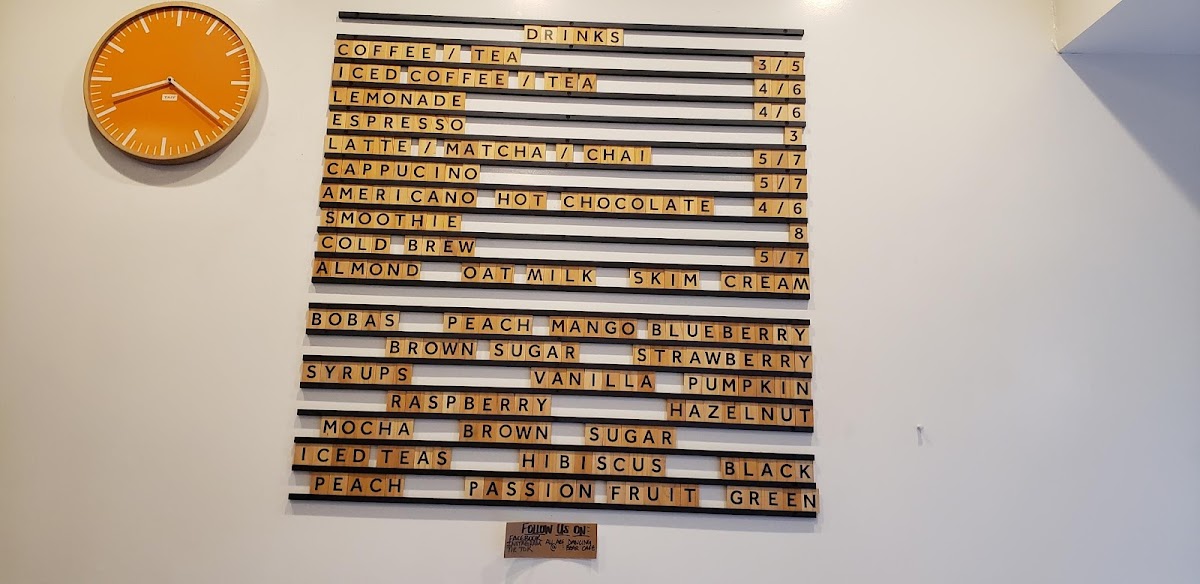 DRINKS
COFFEE / TEA 3/5
ICED COFFEE / TEA 4/6
LEMONADE 4/6
ESPRESSO 3
LATTE / MATCHA / CHAI 5/7
CAPPUCINO 5/7
AMERICANO HOT CHOCOLATE 4/6
SMOOTHIE 8
COLD BREW 5/7
ALMOND OAT MILK SKIM CREAM
BOBAS PEACH MANGO BLUEBERRY
BROWN SUGAR STRAWBERRY
SYRUPS VANILLA PUMPKIN
RASPBERRY HAZELNUT
MOCHA BROWN SUGAR
ICED TEAS HIBISCUS BLACK
PEACH PASSION FRUIT GREEN
FOLLOW US ON:
FACEBOOK
INSTAGRAM DANCING
TIK TOK @ BEAR CAFE